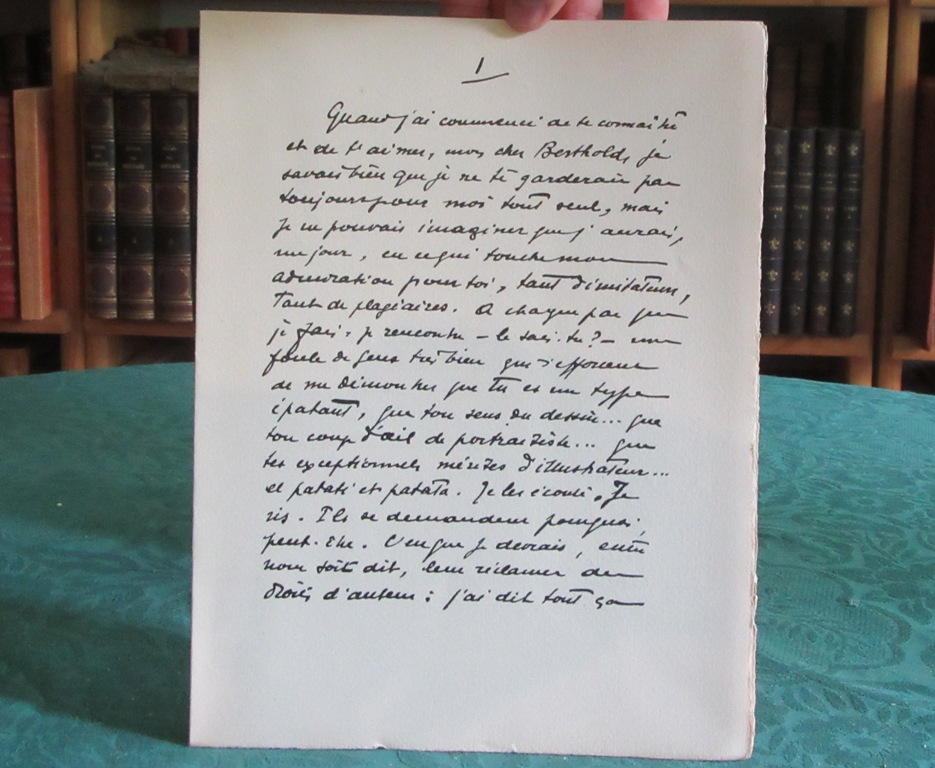 1
Quand j'ai commencé de te connaître
et de t'aimer, mon cher Berthold, je
savais bien que je ne te garderais pas
toujours pour moi tout seul, mais
je ne pouvais imaginer que j'aurais,
un jour, en ce qui touche mon
admiration pour toi, tant d'imitateurs,
tant de plagiaires. A chaque pas que
je fais, je rencontre – le sais-tu ? – une
foule de gens très bien qui s'efforcent
de me démontrer que tu es un type
épatant, que ton sens du dessin... que
ton coup d'œil de portraitiste... que
tes exceptionnels mérites d'illustrateur...
et patati et patata. Je les écoute. Je
ris. Ils se demandent pourquoi,
peut-être. C'est que je devrais, entre
nous soit dit, leur réclamer des
droits d'auteur : j'ai dit tout ça